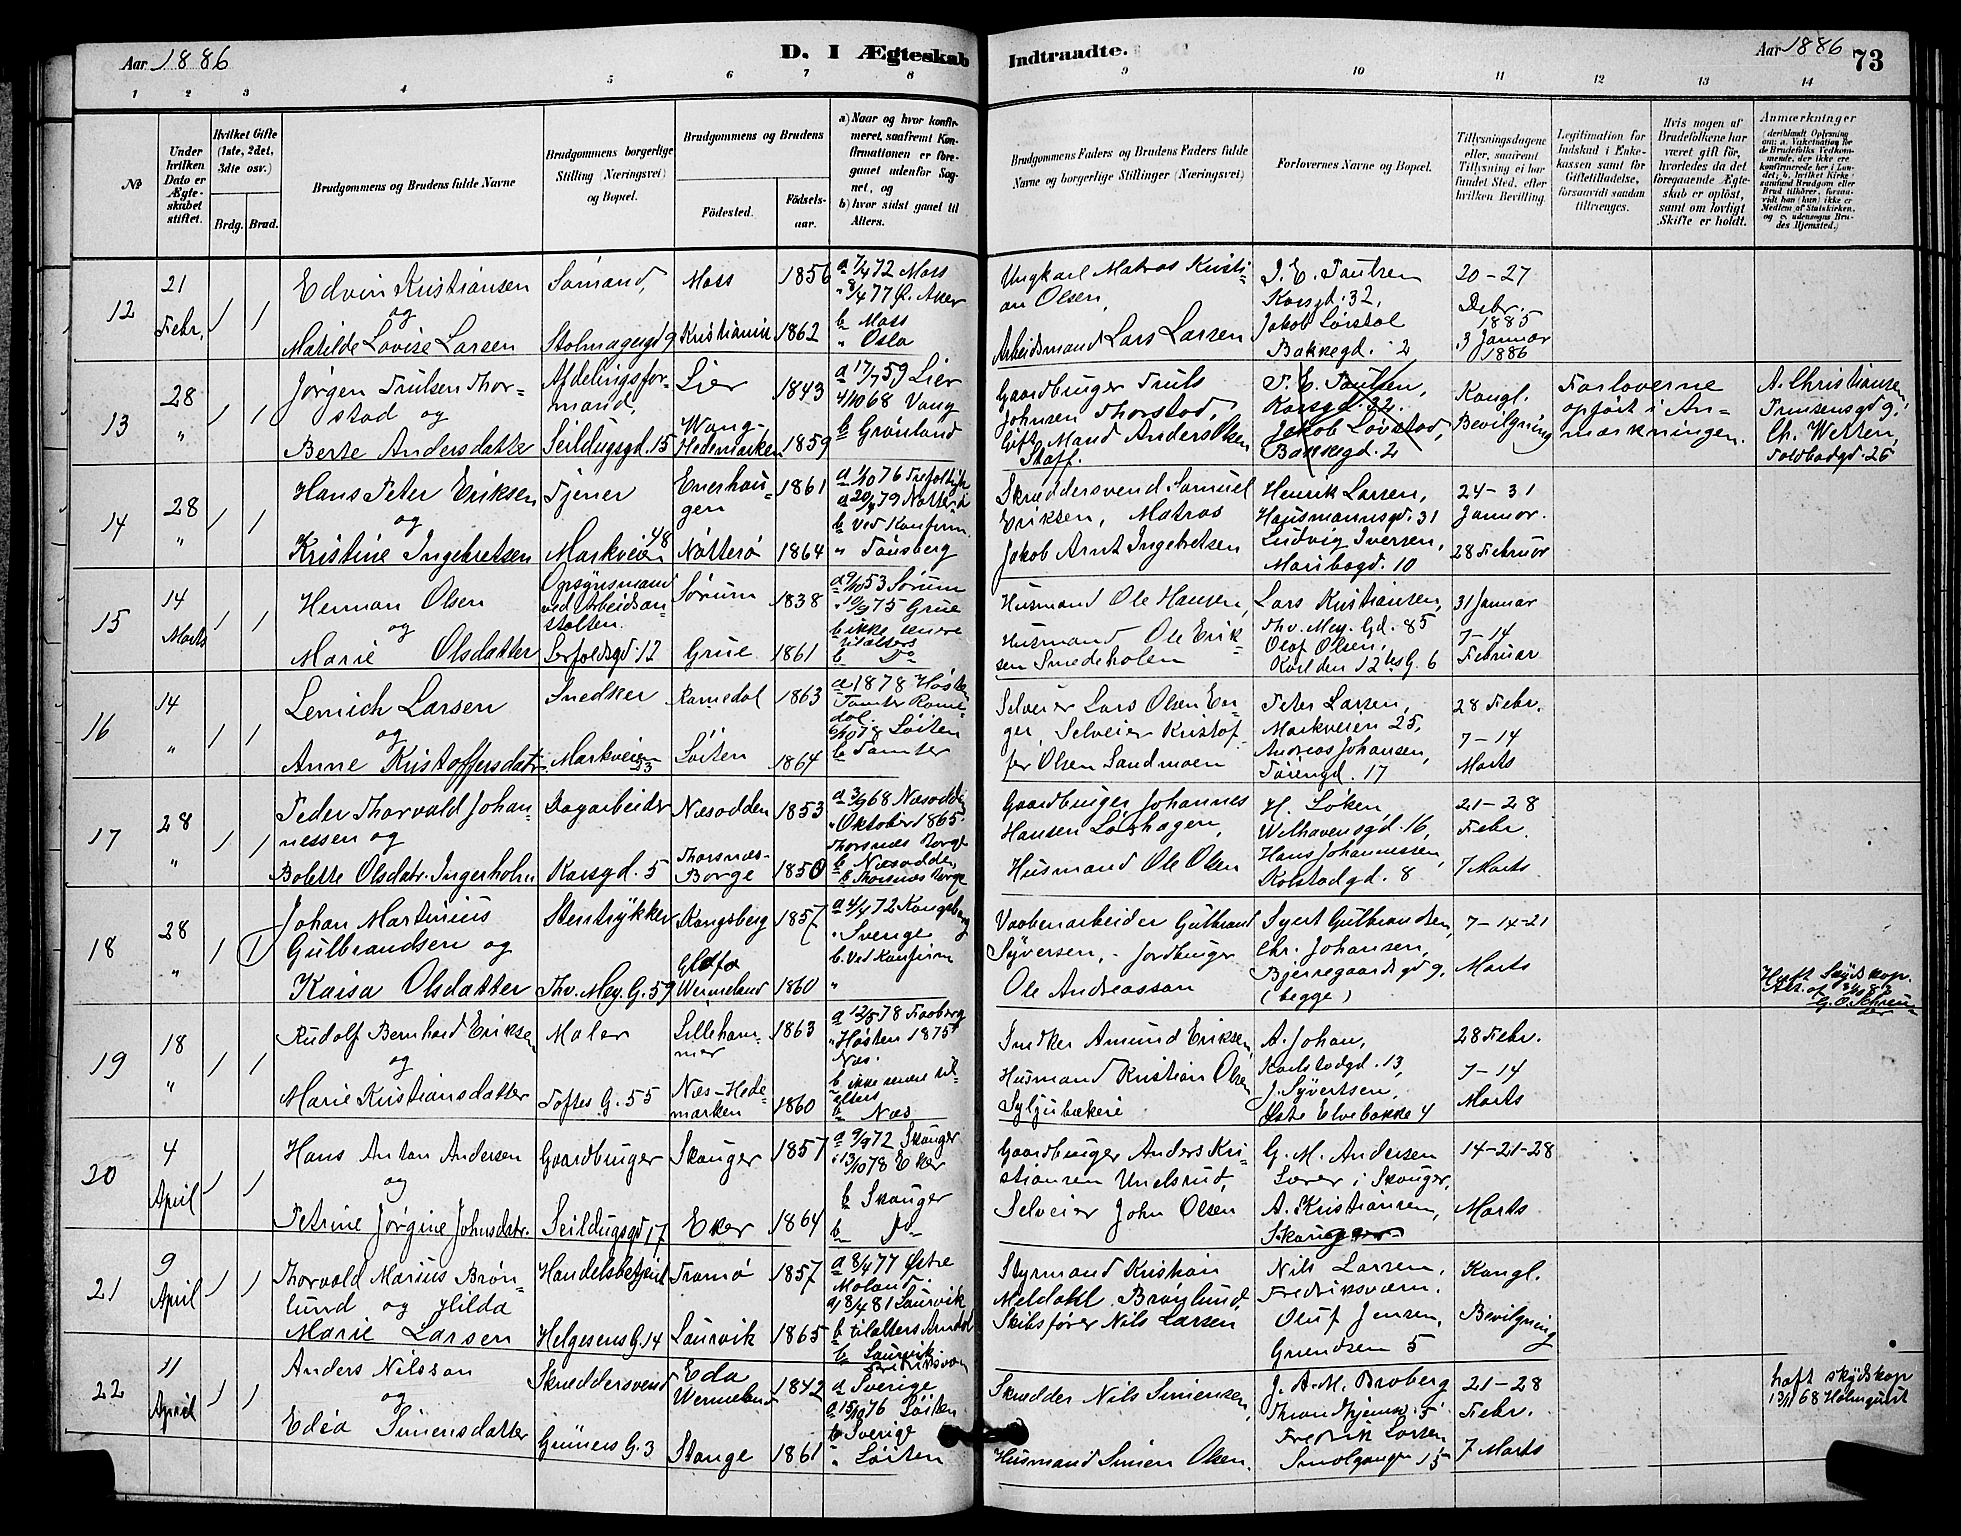 Aar 1886
D. I Ægteskab Indtraadte.
Aar 1886
73
1 2 3 4 5 6 7 8 9 10 11 12 13 14
№
Under hvilken Dato er Ægteskabet stiftet.
Hvilket Gifte (1ste, 2det, 3die osv.)
Brdg. Brud.
Brudgommens og Brudens fulde Navne
Brudgommens borgerlige Stilling (Næringsvei) og Bopæl.
Brudgommens og Brudens
Fødested.
Fødsels-aar.
a) Naar og hvor konfirmeret, saafremt Konfirmationen er foregaaet udenfor Sognet, og
b) hvor sidst gaaet til Alters.
Brudgommens Faders og Brudens Faders fulde Navne og borgerlige Stillinger (Næringsvei)
Forlovernes Navne og Bopæl.
Tillysningsdagene eller, saafremt Tillysning ei har fundet Sted, efter hvilken Bevilling.
Legitimation for Indskud i Enkekassen samt for Giftetilladelse, forsaavidt saadan tiltrænges.
Hvis nogen af Brudefolkene har været gift før, hvorledes da det foregaaende Ægteskab er opløst, samt om lovligt Skifte er holdt.
Anmærkninger
12
21 Febr,
1 1
Edvin Kristiansen
og
Matilde Lovise Larsen
Sømand,
Stolmagergd 9
Moss
Kristiania
1856
1862
a 7/4 72 Moss
" 8/4 77 Ø. Aker
b Moss
" Oslo
Ungkarl Matros Kristian Olsen,
Arbeidsmand Lars Larsen
J. E. Paulsen
Korsgd. 32,
Jakob Lørstad
Bakkegd. 2
20-27
Debr.
1885
3 Januar
1886
13
28 "
1 1
Jørgen Trulsen Thorstad og
Berte Andersdatter
Afdelingsformand,
Seildugsgd. 15
Lier
Wang-Hedemarken
1843
1859
a 17/7 59 Lier
4/10 68 Vang
b Grønland
Gaardbruger Truls
Johnsen Thorstad,
Gift Mand Anders Olsen
Staff.
J. E. Paulsen,
Korsgd. 32.
Jakob Lørstad,
Bakkegd. 2
Kongl.
Bevilgning
Forloverne
opført i Anmærkningen.
A. Christiansen
Ch. Wetten,
Toldbodgd. 25
14
28 "
1 1
Hans Peter Eriksen
og
Kristine Ingebretsen
Tjener
Markveien 48
Enerhaugen
Nøtterø
1861
1864
a 1/10 76 Trefoldigh
a 20/4 79 Nøtterø
b Ved Konfirm.
" Tønsberg
Skræddersvend Samuel
Eriksen, Matros
Jakob Arnt Ingebretsen
Henrik Larsen,
Hausmannsgd. 31
Ludvig Iversen,
Maribogd. 10
24-31
Januar.
28 Februar
15
14 Marts
1 1
Herman Olsen
og
Marie Olsdatter
Opsynsmand
ved Arbeidsanstalten.
Leifoldsgd. 12
Sørum
Grue
1838
1861
Sørum
Grue
b ikke senere
tilalters
b Do
Husmand Ole Hansen,
Husmand Ole Eriksen Smedeholen
Lars Kristiansen,
Thv. Mey. Gd. 85
Olaf Olsen,
Karl den 12tes G. 6
31 Januar
7-14
Februar
16
14 "
1 1
Lemich Larsen
og
Anne Kristoffersdatr.
Snedker
Markveien 23
Romedal
Løiten
1863
1864
a 1878 Høsten
Tomter Romedal.
Løiten
b Tomter
Selveier Lars Olsen Enger, Selveier Kristoffer Olsen Sandmoen
Peter Larsen,
Markveien 25,
Andreas Johansen,
Tøiengd. 17
28 Febr.
7-14
Marts
17
28 "
1 1
Peder Thorvald Johannessen og
Bolette Olsdatr. Ingerholm
Dagarbeider
Korsgd. 5
Næsodden
Thorsnæs-Borge
1853
1850
a 3/9 68 Næsodden
" Oktober 1865
Thorsnæs Borge
b Næsodden,
b Thorsnæs Borge
Gaardbruger Johannes
Hansen Lørhagen,
Husmand Ole Olsen
H. Løken,
Welhavensgd. 16,
Hans Johannessen,
Kolstadgd. 8
21-28
Febr.
7 Marts
18
28 "
1 1
Johan Martinius
Gulbrandsen og
Kaisa Olsdatter
Stentrykker
Thv. Mey. G. 59
Kongsberg
Glafa
Wermeland
1857
1860
a 4/4 72 Kongsberg
" Sverige
b. Ved Konfirm
"
Vaabenarbeider Gulbrand
Syversen, - Jordbruger
Ole Andreasson
Syert Gulbrandsen,
Chr. Johansen,
Bjerregaardsgd 9,
(begge)
7-14-21
Marts
Haft Skydskop.
19
18 "
1 1
Rudolf Bernhard Eriksen
og
Marie Kristiansdatter
Maler
Toftes G. 55
Lillehammer
Næs-Hedemarken
1863
1860
a 12/5 78 Faaberg
" Høsten 1875
Næs.
b ikke senere tilalters
b Næs
Snedker Amund Eriksen,
Husmand Kristian Olsen
Syljubækeie
A. Johan,
Karlstadgd. 13,
J. Syvertsen,
Østre Elvebakke 4
28 Febr.
7-14
Marts
20
4 April
1 1
Hans Anton Andersen
og
Petrine Jørgine Johnsdatr.
Gaardbruger
Seildugsgd 17
Skauger
Eker
1857
1864
a 9/9 72 Skauger
" 13/10 78 Eker
b Skauger
b Do
Gaardbruger Anders Kristiansen Undsrud,
Selveier John Olsen
G. M. Andersen
Lærer i Skauger,
A. Kristiansen,
Skauger
14-21-28
Marts
21
9 April
1 1
Thorvald Marius Brønlund og Hilda
Marie Larsen
Handelsbetjent
Helgesens G. 14
Tromø
Laurvik
1857
1865
a 8/4 77 Østre
Moland.
Laurvik
b tilalters Arndal
b Laurvik
Styrmand Kristian
Meldahl Brønlund,
Skibsfører Nils Larsen
Nils Larsen,
Fredriksværn.
Oluf Jensen,
Grundsen 5
Kongl.
Bevilgning
22
11 April
1 1
Anders Nilsson
og
Edea Simensdatter
Skræddersvend
Grüners G. 3
Eda
Wermeland
Stange
1842
1861
a Sverige
a 15/10 76 Løiten
b Sverige
" Løiten
Skrædder Nils Simensen,
Husmand Simen Olsen.
J. A. M. Broberg
Throndhjemsv. 5
Fredrik Larsen
Smalgangen 15
21-28
Febr.
7 Marts
haft skydskop
13/11 68 Holmquist